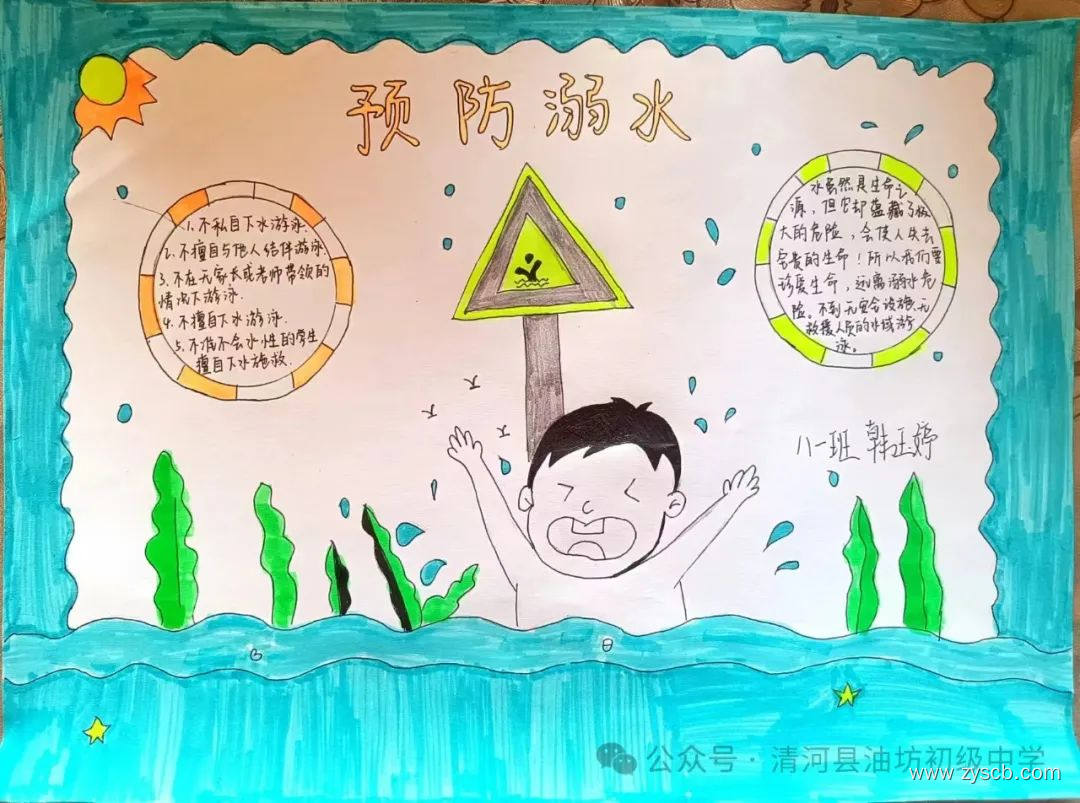 预防溺水
1.不私自下水游泳.
2.不擅自与他人结伴游泳
3.不在无家长或老师带领的
情况下游泳.
4.不擅自下水游泳.
5.不准不会水性的学生
擅自下水施救.
水虽然是生命之
源，但它却蕴藏了极
大的危险，会使人失去
宝贵的生命！所以我们要
珍爱生命，远离溺水危
险。不到无安全设施、无
救援人员的水域游
泳。
八一班 韩玉婷
公众号·清河县油坊初级中学
www.zyscb.com